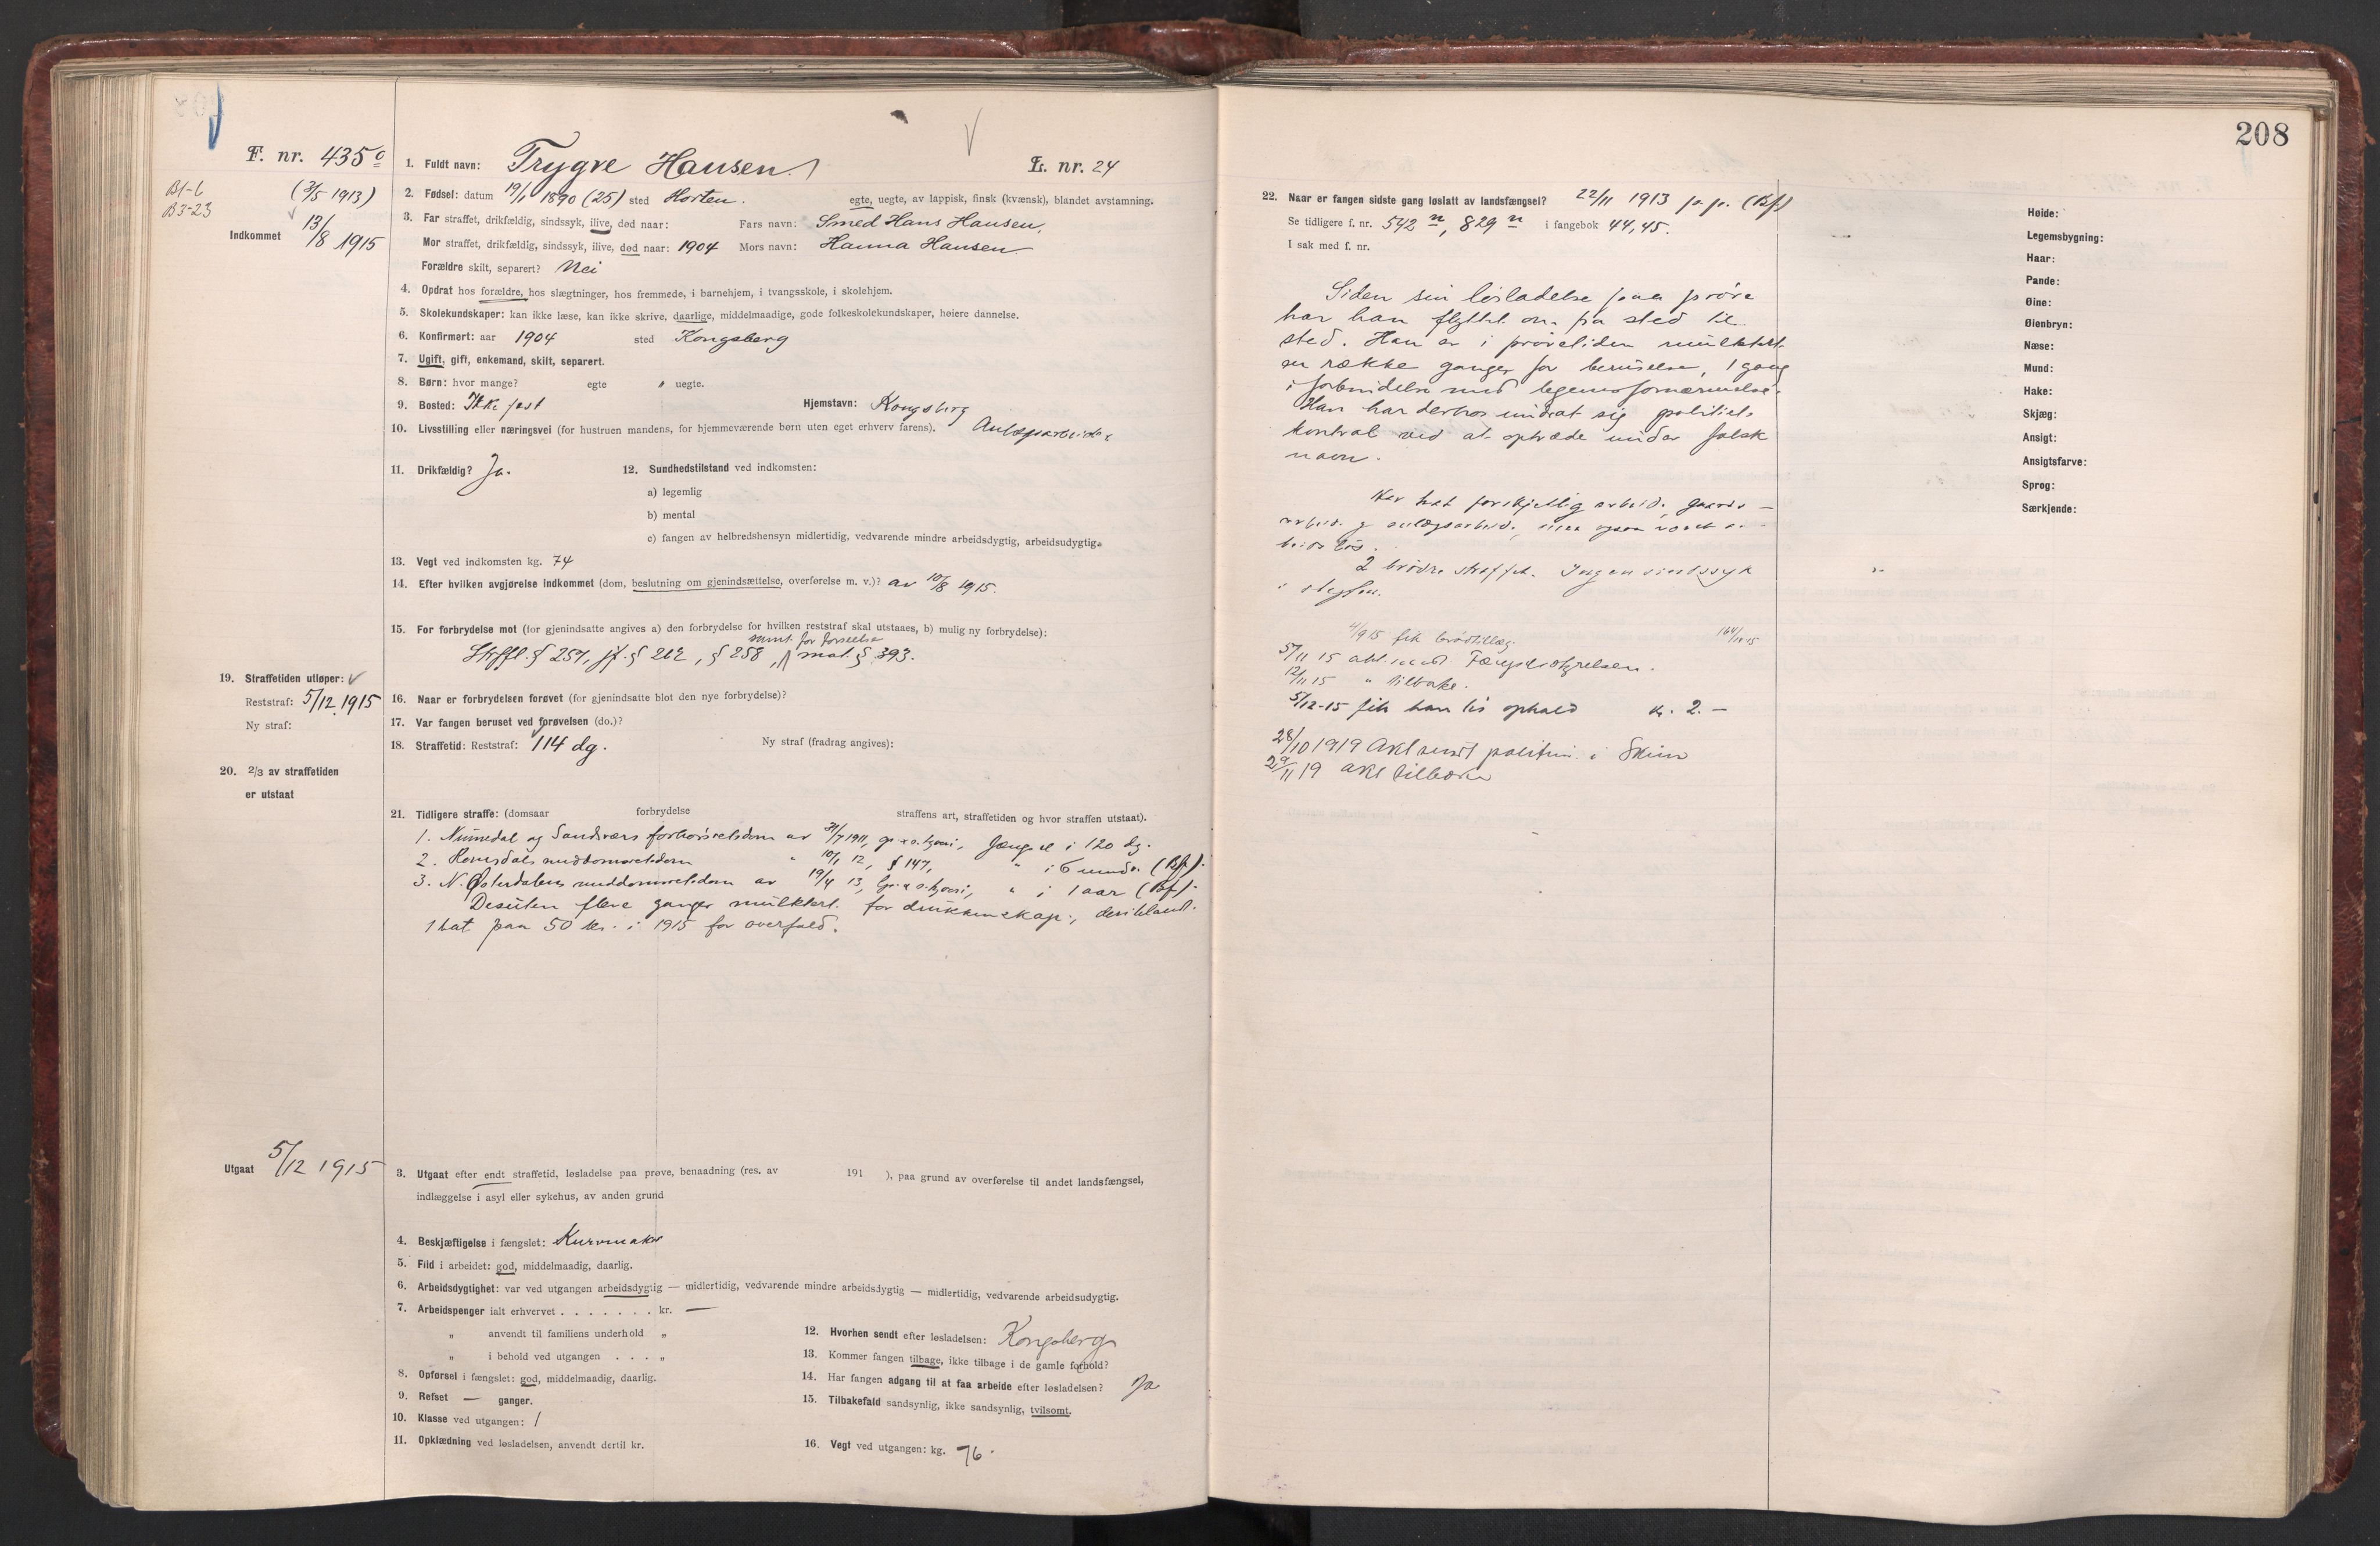 208
F. nr. 435
B1-6
B3-23
(3/5 1913)
Indkommet 13/8 1915
1. Fuldt navn: Trygve Hansen
L. nr. 24
2. Fødsel: datum 19/1 1890 (25) sted Horten. egte, uegte, av lappisk, finsk (kvænsk), blandet avstamning.
3. Far straffet, drikfældig, sindssyk, ilive, død naar: Fars navn: Smed Hans Hansen.
Mor straffet, drikfældig, sindssyk, ilive, død naar: 1904 Mors navn: Hanna Hansen
Forældre skilt, separert? Nei
4. Opdrat hos forældre, hos slægtninger, hos fremmede, i barnehjem, i tvangsskole, i skolehjem.
5. Skolekundskaper: kan ikke læse, kan ikke skrive, daarlige, middelmaadige, gode folkeskolekundskaper, høiere dannelse.
6. Konfirmert: aar 1904 sted Kongsberg
7. Ugift, gift, enkemand, skilt, separert.
8. Børn: hvor mange? egte uegte.
9. Bosted: Ikke fast Hjemstavn: Kongsberg
10. Livsstilling eller næringsvei (for hustruen mandens, for hjemmeværende børn uten eget erhverv farens). Anlægsarbeider
11. Drikfældig? Ja. 12. Sundhedstilstand ved indkomsten:
a) legemlig
b) mental
c) fangen av helbredshensyn midlertidig, vedvarende mindre arbeidsdygtig, arbeidsudygtig.
13. Vegt ved indkomsten kg. 74
14. Efter hvilken avgjørelse indkommet (dom, beslutning om gjenindsættelse, overførelse m. v.)? av 10/8 1915.
15. For forbrydelse mot (for gjenindsatte angives a) den forbrydelse for hvilken reststraf skal utstaaes, b) mulig ny forbrydelse):
samt for forseelse
Strffl. § 257, jf. § 262, § 258, mot § 393.
19. Straffetiden utløper:
Reststraf: 5/12 1915
Ny straf:
16. Naar er forbrydelsen forøvet (for gjenindsatte blot den nye forbrydelse)?
17. Var fangen beruset ved forøvelsen (do.)?
18. Straffetid: Reststraf: 114 dg. Ny straf (fradrag angives):
20. 2/3 av straffetiden
er utstaat
21. Tidligere straffe: (domsaar forbrydelse straffens art, straffetiden og hvor straffen utstaat).
1. Numedal og Sandsværs forhørsretsdom av 31/7 1911, fængsel i 120 dg.
2. Romsdals meddomsretsdom " 10/1 12, § 147, " i 6 mndr. (Bf.).
3. N. Østerdalens meddomsretsdom av 19/4 13, " i 1 aar (Bf.).
Desuten flere ganger mulktert for drukkenskap, deriblandt
1 bøt paa 50 kr. i 1915 for overfald.
Utgaat 5/12 1915
3. Utgaat efter endt straffetid, løsladelse paa prøve, benaadning (res. av 191 ), paa grund av overførelse til andet landsfængsel,
indlæggelse i asyl eller sykehus, av anden grund
4. Beskjæftigelse i fængslet: Kurvmaker
5. Flid i arbeidet: god, middelmaadig, daarlig.
6. Arbeidsdygtighet: var ved utgangen arbeidsdygtig — midlertidig, vedvarende mindre arbeidsdygtig — midlertidig, vedvarende arbeidsudygtig.
7. Arbeidspenger ialt erhvervet . . . . . . . kr. —
" anvendt til familiens underhold "
" i behold ved utgangen . . . "
8. Opførsel i fængslet: god, middelmaadig, daarlig.
9. Refset — ganger.
10. Klasse ved utgangen: 1
11. Opklædning ved løsladelsen, anvendt dertil kr.
12. Hvorhen sendt efter løsladelsen: Kongsberg
13. Kommer fangen tilbage, ikke tilbage i de gamle forhold?
14. Har fangen adgang til at faa arbeide efter løsladelsen? Ja
15. Tilbakefald sandsynlig, ikke sandsynlig, tvilsomt.
16. Vegt ved utgangen: kg. 76.
22. Naar er fangen sidste gang løslatt av landsfængsel? 22/11 1913 p. p. (Bf)
Se tidligere f. nr. 542, 829 i fangebok 44, 45.
I sak med f. nr.
Siden sin løsladelse paa prøve
har han flyttet om fra sted til
sted. Han er i prøvetiden mulktert
en række ganger for beruselse, 1 gang
i forbindelse med legemsfornærmelse.
Han har derhos undrat sig politiets
kontrol ved at optræde under falsk
navn.
Har hat forskjellig arbeide, gaards-
arbeide og anlægsarbeide, men ogsaa været ar-
beidsløs.
2 brødre straffet. Ingen sindssyk
i slegten.
4/9 15 fik brødtillæg.
5/11 15 akt. sendt Fængselsstyrelsen.
12/11 15 " tilbake.
5/12-15 fik han til ophold kr. 2.—
28/10 1919 Akt sendt politim. i Skien
29/11 19 akt tilbake
Høide:
Legemsbygning:
Haar:
Pande:
Øine:
Øienbryn:
Næse:
Mund:
Hake:
Skjæg:
Ansigt:
Ansigtsfarve:
Sprog:
Særkjende: